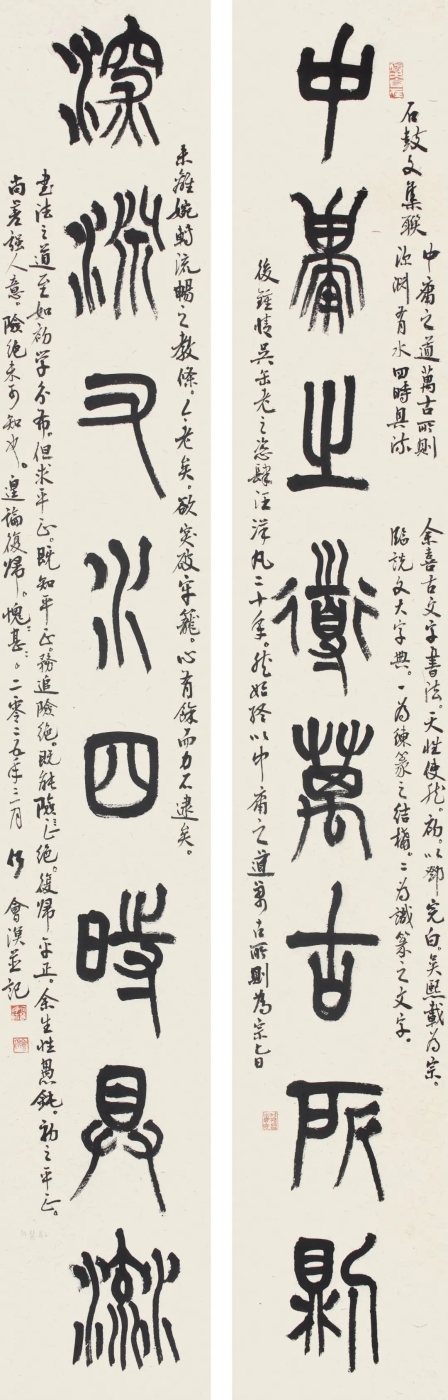 石鼓文集聯
中庸之道萬古所則
深渊有水四時具流
余喜古文字書法。天性使然。初。以鄧完白。吳熙載為宗。
臨說文大字典。一為練篆之結構。二為識篆之文字。
中庸之道萬古所則
後鍾情吳缶老之恣肆汪洋凡二十年。然始終以中庸之道萬古所則為宗旨
未離婉轉流暢之教條。人老矣。欲突破牢籠。心有餘而力不逮矣。
深淵又水四時具流
書法之道至如初學分布。但求平正。既知平正。務追險絕。既能險絕。復歸平正。余生性愚鈍。初之平正。
尚差強人意。險絕未可知也。遑論復歸。愧甚。二零二五年二月 會漢並記